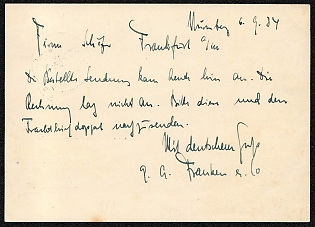 Nürnberg 6.9.34
Firma Schäfer Frankfurt a/m
Die bestellte Sendung kam heute hier an. Die
Rechnung lag nicht an. Bitte diese und den
Frachtbriefdoppel nachzusenden.
Mit deutschem Gruß
Franken & Co